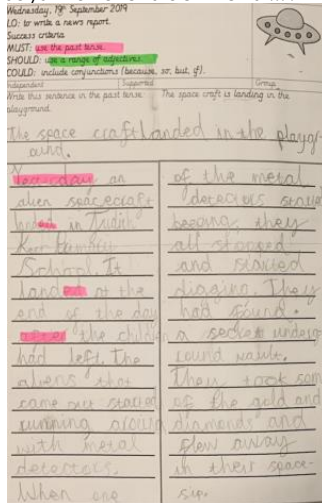 Wednesday, 18th September 2019
LO: to write a news report.
Success criteria
MUST: use the past tense.
SHOULD: use a range of adjectives.
COULD: include conjunctions (because, so, but, if).
Independent Supported Group
Write this sentence in the past tense. The space craft is landing in the
playground.
The space craft landed in the playgr-
ound.
Yesterday an
alien spacecraft
landed in
School. It
landed at the
end of the day
after the children
had left. The
aliens that
came out started
running around
with metal
detectors.
When one
of the metal
detectors started
they
all stopped
and started
They
had found
a underg
round
They took som
of the gold and
diamonds and
flew away
in their space-